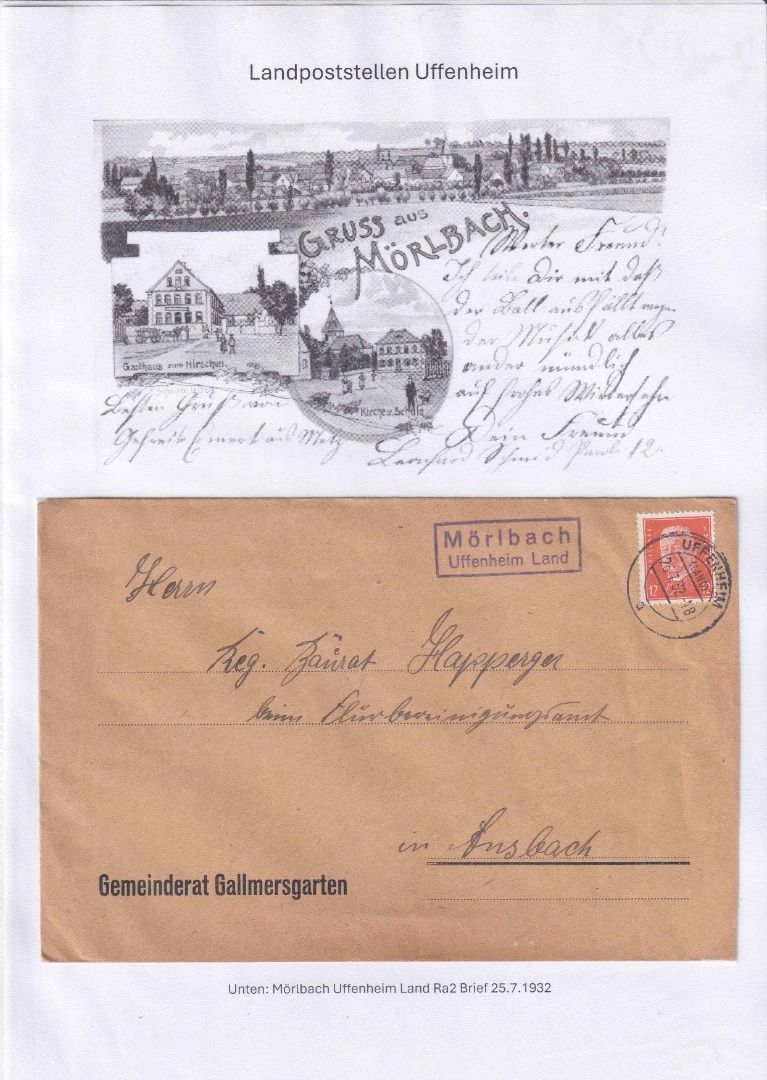 Landpoststellen Uffenheim
GRUSS aus
MÖRLBACH.
Werter Freund!
Ich teile Dir mit daß
der Ball ausfällt wegen
der Musik alles
ander mündlich
auf frohes Wiedersehn
Dein Freund
Bernhard Schmid
Gasthaus zum Hirschen.
Kirche u. Schule
Besten Gruß von
Gefreit aus Metz
Mörlbach
Uffenheim Land
UFFENHEIM
12
Herrn
Reg. Baurat Happerger
beim Flurbereinigungsamt
in Ansbach
Gemeinderat Gallmersgarten
Unten: Mörlbach Uffenheim Land Ra2 Brief 25.7.1932